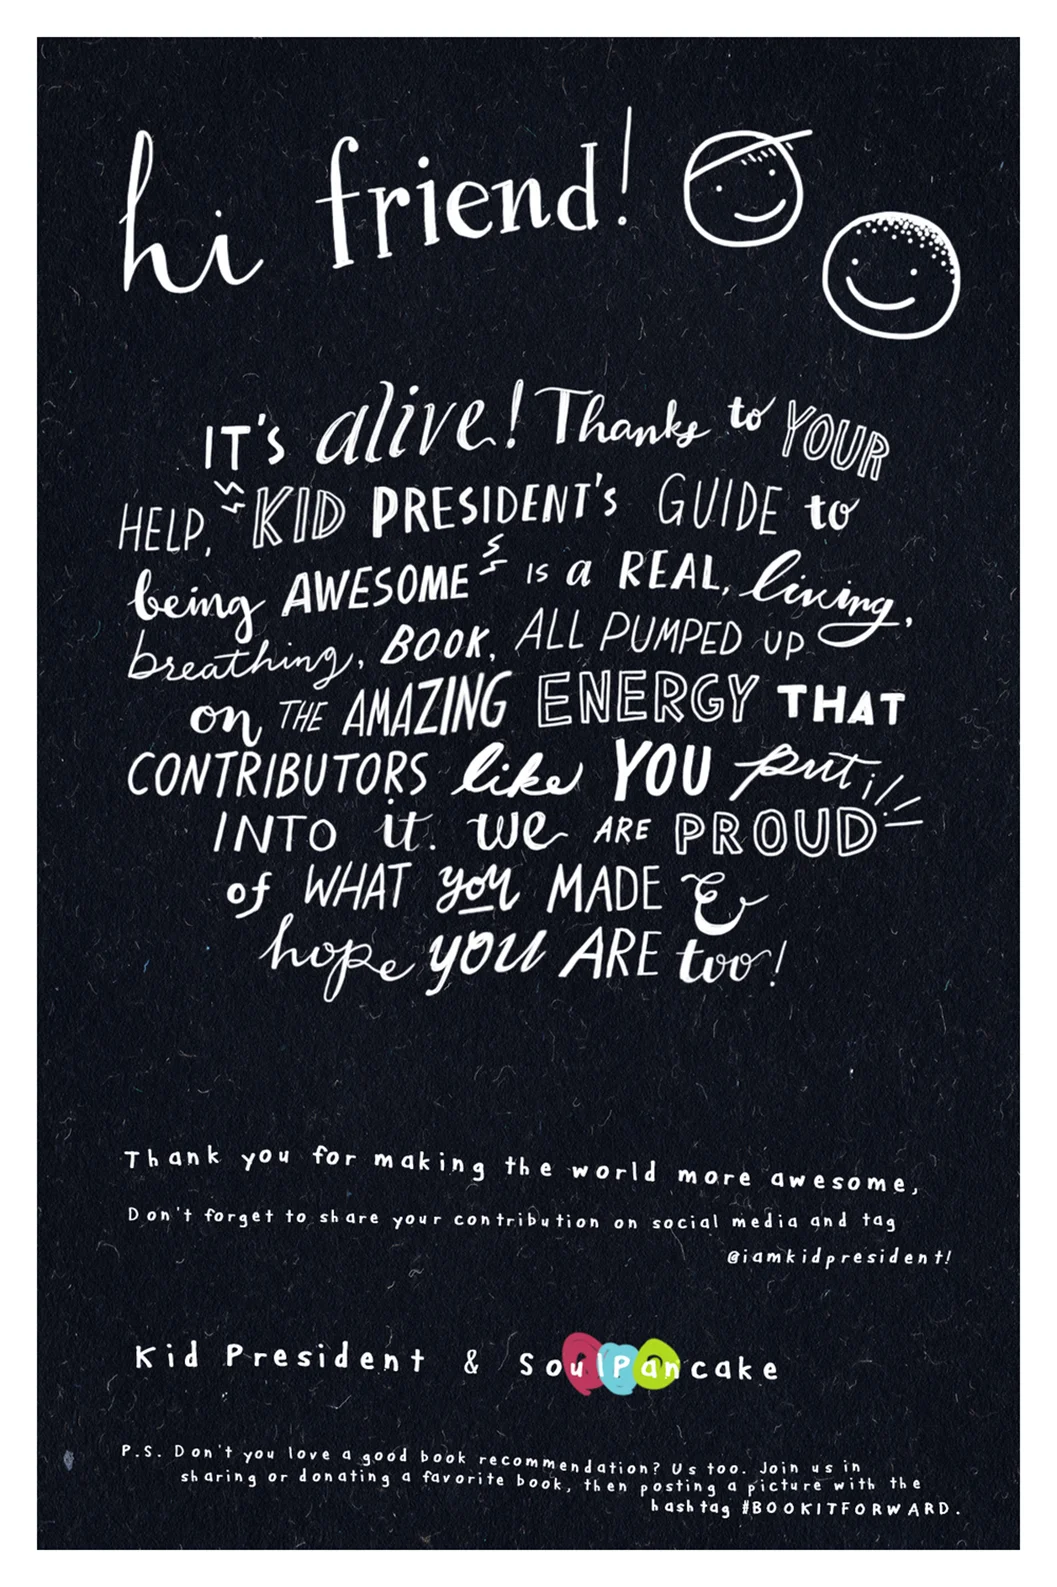 hi friend!
IT'S alive! Thanks to YOUR
HELP, KID PRESIDENT'S GUIDE to
being AWESOME IS a REAL, living,
breathing, BOOK, ALL PUMPED UP
on THE AMAZING ENERGY THAT
CONTRIBUTORS like YOU put
INTO it. we ARE PROUD
of WHAT you MADE &
hope you ARE too!
Thank you for making the world more awesome,
Don't forget to share your contribution on social media and tag
@iamkidpresident!
Kid President & SoulPancake
P.S. Don't you love a good book recommendation? Us too. Join us in
sharing or donating a favorite book, then posting a picture with the
hashtag #BOOKITFORWARD.